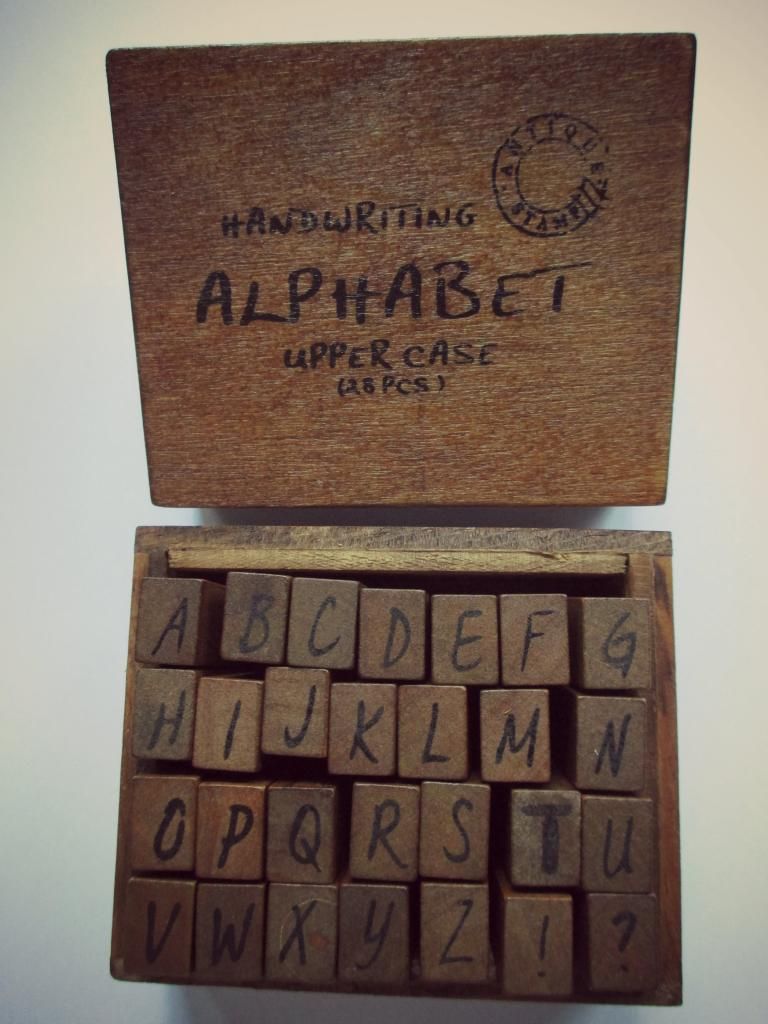 ANTIQUE
STAMP
HANDWRITING
ALPHABET
UPPER CASE
(28 PCS)
A B C D E F G
H I J K L M N
O P Q R S T U
V W X Y Z ! ?